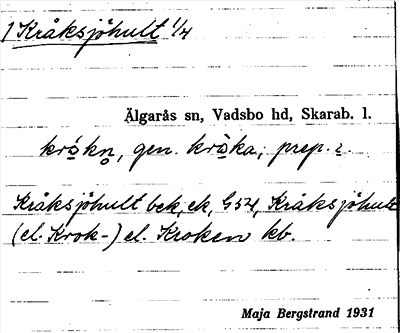 1 Kråksjöhult 1/4
Älgarås sn, Vadsbo hd, Skarab. l.
gen. prep. i.
Kråksjöhult bek, ek, G54, Kråksjöhult
(el. Krok-) el. Kroken kb.
Maja Bergstrand 1931